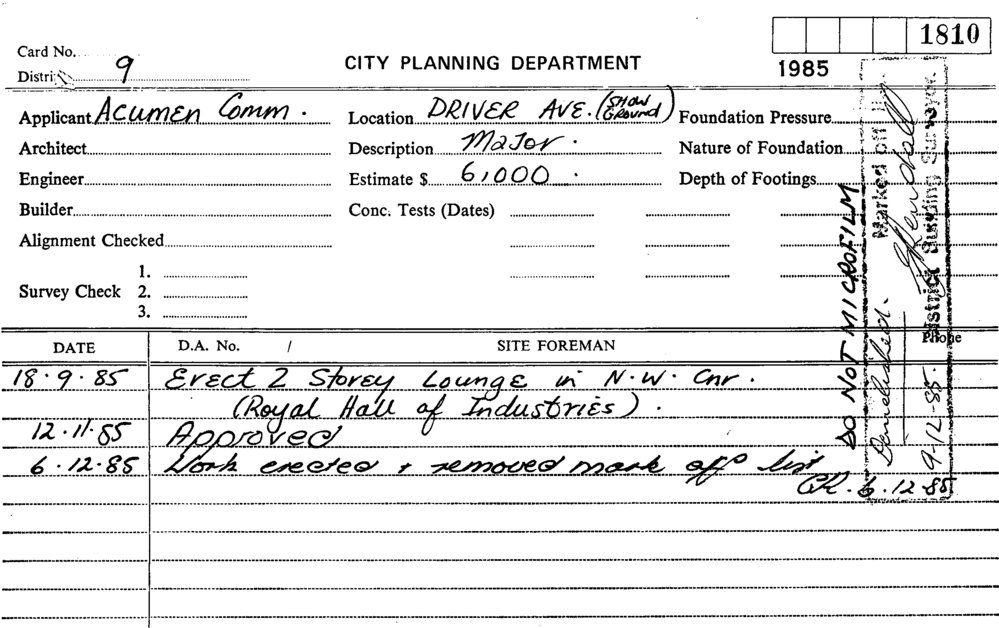 1810
Card No.
CITY PLANNING DEPARTMENT
1985
District 9
Applicant Acumen Comm. Location DRIVER AVE. (SHOW GROUND) Foundation Pressure
Architect Description Major. Nature of Foundation
Engineer Estimate $ 6,000. Depth of Footings
Builder Conc. Tests (Dates)
Alignment Checked
1.
Survey Check 2.
3.
DATE D.A. No. / SITE FOREMAN Phone
18.9.85 Erect 2 Storey Lounge in N.W. Cnr.
(Royal Hall of Industries).
12.11.85 Approved
6.12.85 Work erected + removed mark off list
CR. 6.12.85
DO NOT MICROFILM
Marked off
Demolished.
District Building Surveyor.
9-12-85.